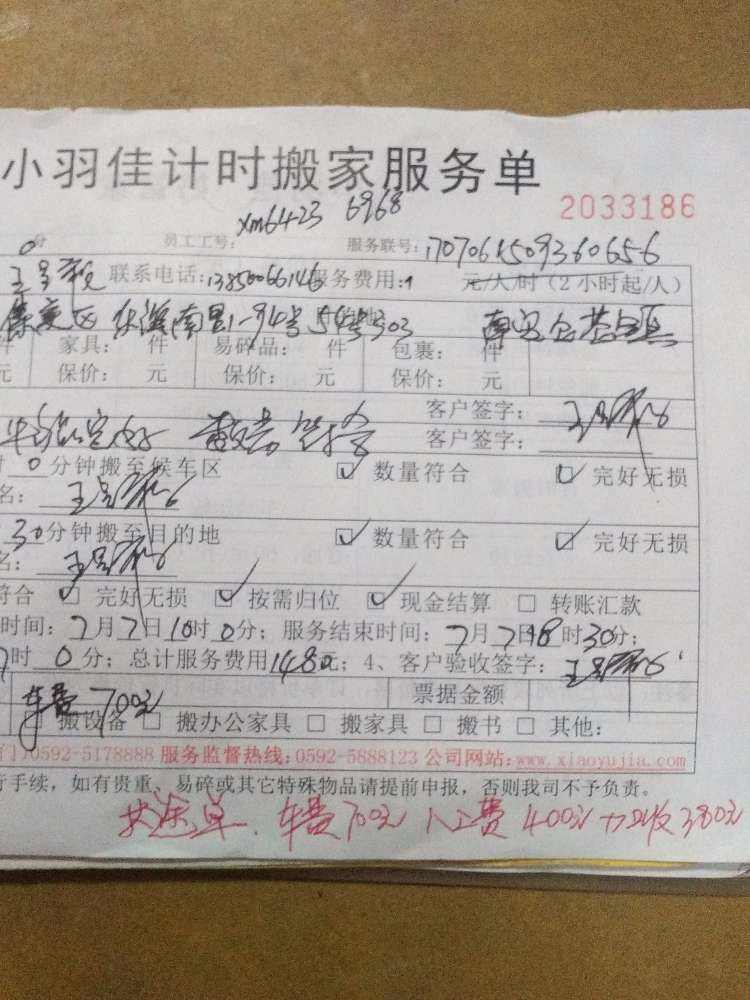 小羽佳计时搬家服务单
2033186
0分 员工工号: xm6423 6968 服务联号: 1707061509360656
联系电话:13850066146 服务费用: 元/人/时(2小时起/人)
南里1-94号54号303
件 家具: 件 易碎品: 件 包裹: 件
元 保价: 元 保价: 元 保价: 元
客户签字:
客户签字:
时0分钟搬至候车区 ☑ 数量符合 ☑ 完好无损
名:
30分钟搬至目的地 ☑ 数量符合 ☑ 完好无损
名:
符合 ☑ 完好无损 ☑ 按需归位 ☑ 现金结算 □ 转账汇款
时间:7月7日10时0分; 服务结束时间:7月7日18时30分;
时0分; 总计服务费用1480元; 4、客户验收签字:
车费700元 票据金额
搬设备 □ 搬办公家具 □ 搬家具 □ 搬书 □ 其他:
门)0592-5178888 服务监督热线:0592-5888123 公司网站:www.xiaoyujia.com
行手续, 如有贵重、易碎或其它特殊物品请提前申报, 否则我司不予负责。
长途单. 车费700元 人工费400元 加收380元